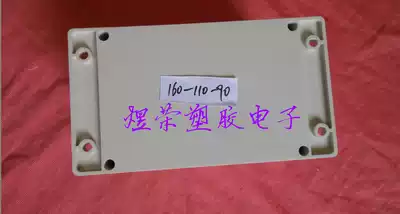 160-110-90
煋荣塑胶电子